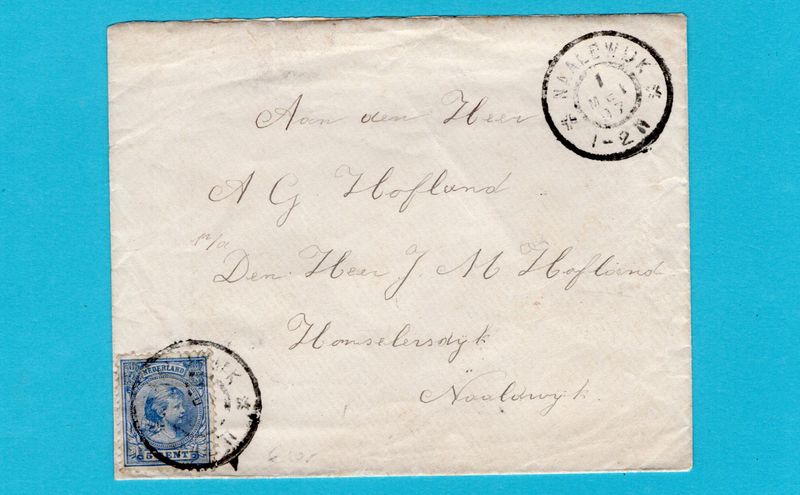 NAALDWIJK
1
MEI
97
1-2N
Aan den Heer
A G Hofland
p/a
Den Heer J. M Hofland
Honselersdijk
Naaldwijk.
NEDERLAND
5 CENT 5